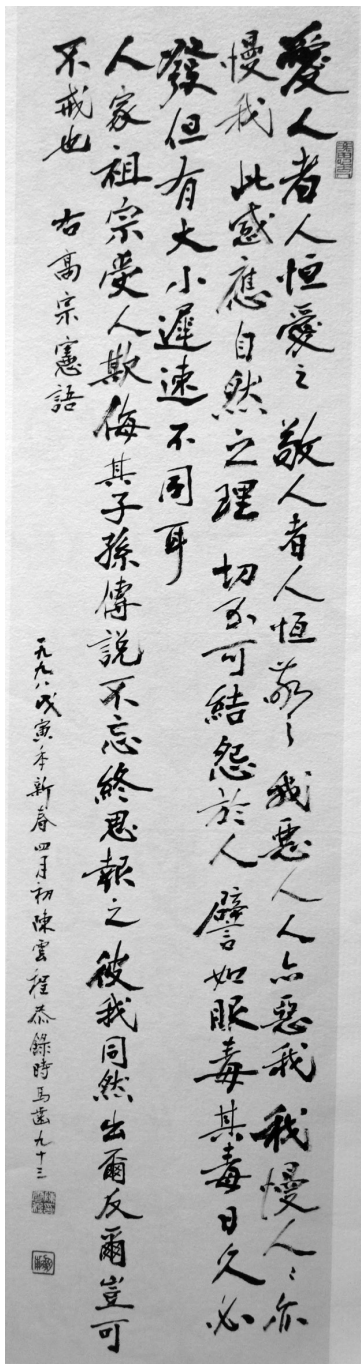 愛人者人恒愛之 敬人者人恒敬之 我惡人人亦惡我 我慢人〻亦
慢我 此感應自然之理 切不可結怨於人 譬如服毒其毒日久必
發但有大小遲速不同耳
人家祖宗受人欺侮其子孫傳說不忘終思報之彼我同然出爾反爾豈可
不戒也 右高宗憲語
一九九八戊寅年新春四月初陳雲程恭錄時馬齒九十三